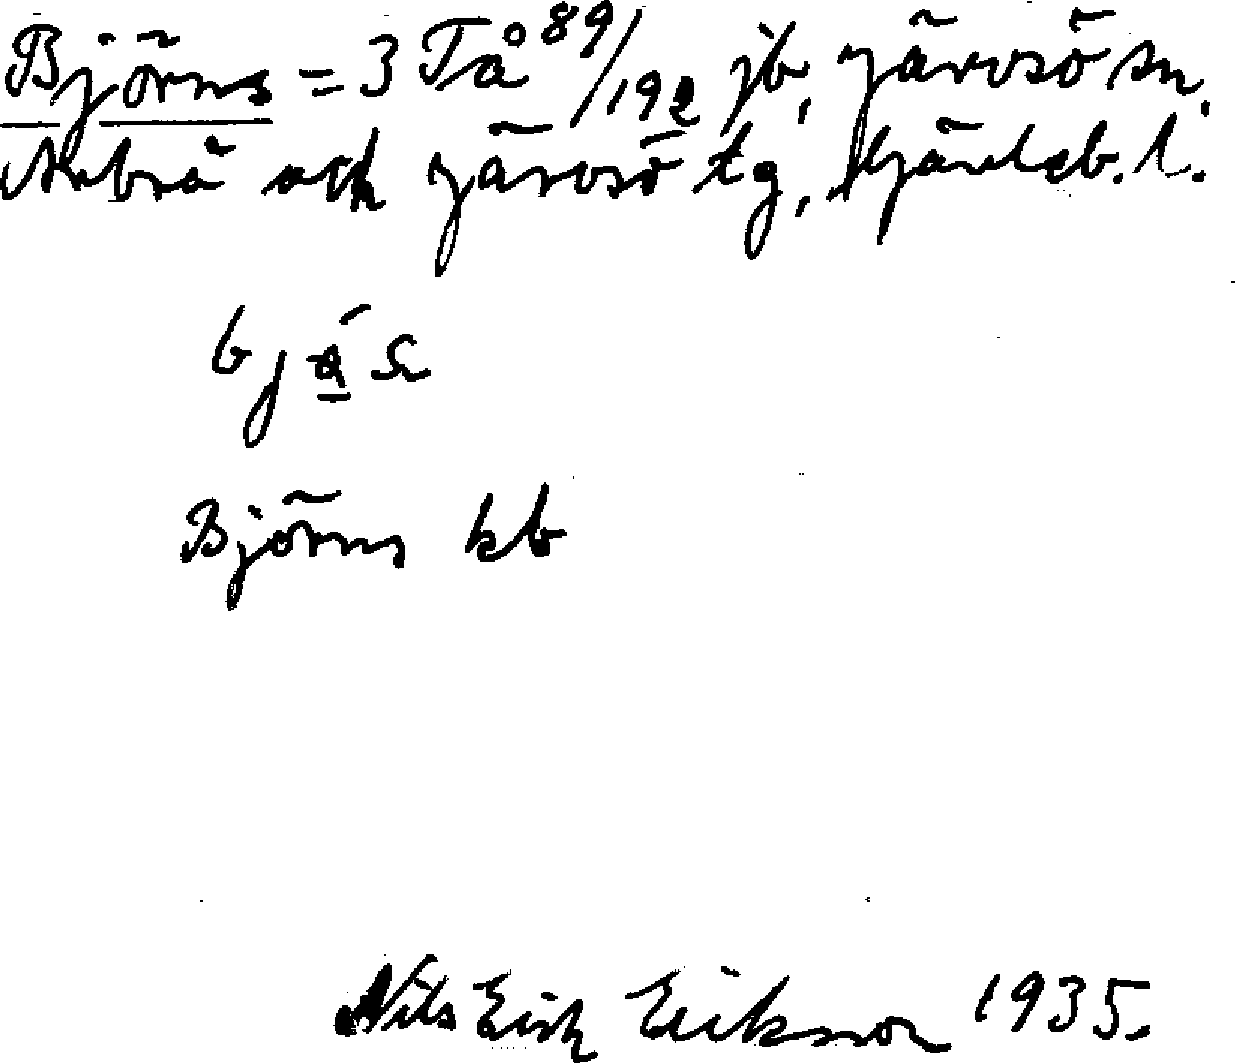 Björns = 3 Tå 89/192 jb, Järvsö sn.
Arbrå och Järvsö tg, Gävleb. l.
Björns kb
Nils Erik Eriksson 1935.